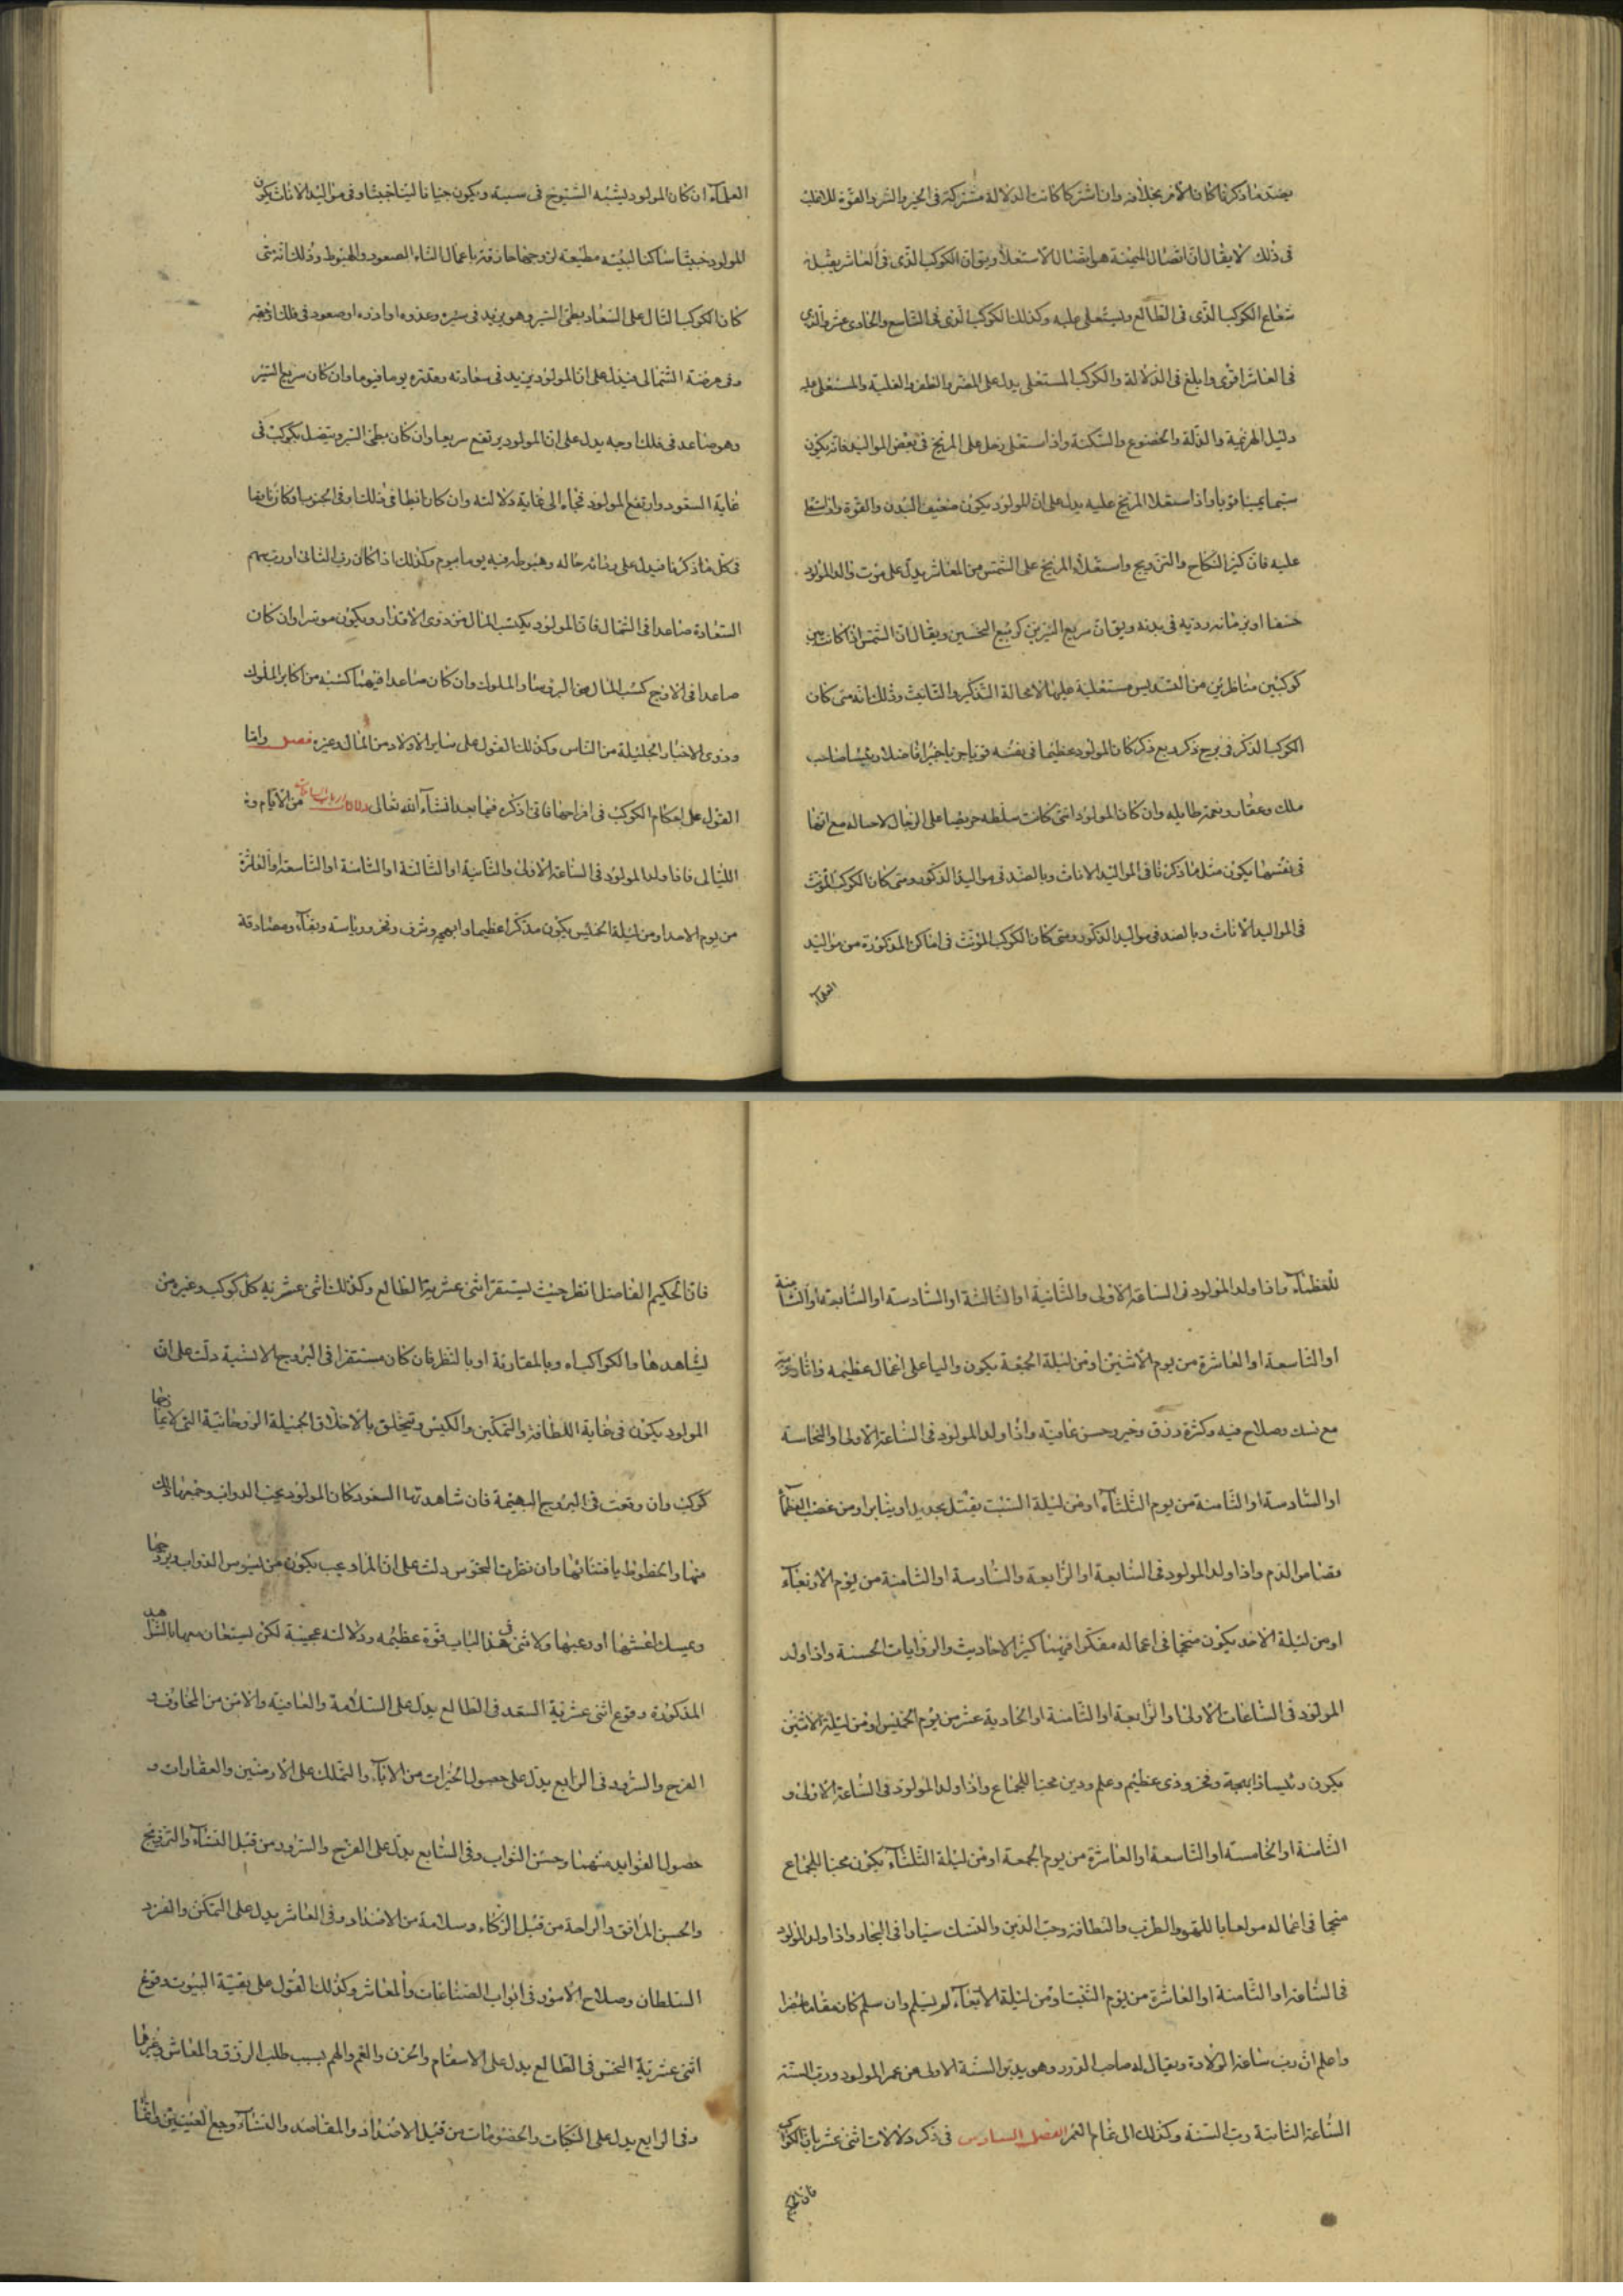 بضد ما ذكرنا كان الامر بخلافه وان اشتركا كانت الدلالة مشتركة فى الخير والشر والقوة للاغلب
فى ذلك لا يقال ان اتصال الميمنة هو اتصال الاستعلا ويق ان الكوكب الذى فى العاشر يقبل
شعاع الكوكب الذى فى الطالع ويستعلى عليه وكذلك الكوكب الذى فى التاسع والحادى عشر والذى
فى العاشر اقوى وابلغ فى الدلالة والكوكب المستعلى يدل على النصر والظفر والغلبة والمستعلى عليه
دليل الهزيمة والذلة والخضوع والسكنة واذا استعلى زحل على المريخ فى بعض المواليد فانه يكون
واذا استعلا المريخ عليه يدل على ان المولود يكون ضعيف البدن والقوة
عليه فان كثير النكاح والتزويج واستعلاء المريخ على الشمس من العاشر يدل على موت والد المولود
فى بدنه ويق ان سريع النيرين كربيع النحسين ويقال ان الشمس اذا كانت بين
كوكبين مناظرين من التسديس مستعلية عليها لا محالة التذكير والتانيث وذلك انه متى كان
الكوكب الذكر فى برج ذكر ربع ذكر كان المولود عظيما فى نفسه قويا فاضلا رئيسا صاحب
ملك وعقار ونعمة طايلة وان كان المولود انثى كانت سلطة حريصا على الرجال لا حساله مع انها
فى نفسها يكون مثل ما ذكرنا فى المواليد الاناث وبالضد فى مواليد الذكور ومتى كان الكوكب المؤنث
فى المواليد الاناث وبالضد فى مواليد الذكور ومتى كان الكوكب المؤنث فى اماكن المذكورة من مواليد
العلماء
العلماء ان كان المولود ليشبه الشيوخ فى سببه ويكون جبانا لينا خبيثا وفى مواليد الاناث يكون
المولود خبيثا ساكنا لبيته مطيعة لزوجها حاذقة باعمال النساء الصعود والهبوط وذلك انه متى
كان الكوكب الدال على السعاد بطئ السير وهو يزيد فى سيره وعدده او صعود فى فلك
وفى عرضه الشمالى فيدل على ان المولود يزيد فى سعادته وقدره يوما فيوما وان كان سريع السير
وهو صاعد فى فلك اوجه يدل على ان المولود يرتفع سريعا وان كان بطئ السير ويتصل بكوكب فى
غاية السعود وارتفع المولود فجاءة الى غاية دلالته وان كان هابطا فى ذلك وفى الجنوب
فى كل ما ذكرنا فيدل على حاله وهبوطه فيه يوما بيوم وكذلك اذا كان رب الثانى او رب سهم
السعادة صاعدا فى الشمال فان المولود يكتسب المال من ذوى الاقدار ويكون موسرا وان كان
صاعدا فى الاوج كسب المال من الروسا والملوك وان كان صاعدا فيهما كسبه من اكابر الملوك
وذوى الاخبار الجليلة من الناس وكذلك القول على ساير الاولاد من المال وغيره فصل واما
القول على احكام الكوكب فى افراحها فانى اذكره فيما بعد انشاء الله تعالى من الايام و
الليالى فاذا ولد المولود فى الساعة الاولى والثانية او الثالثة او الثامنة او التاسعة او العاشرة
من يوم الاحد او من ليلة الخميس يكون مذكرا عظيما وشرف وفخر ورياسة وبقاء ومصادقة
للعظماء واذا ولد المولود فى الساعة الاولى والثانية او الثالثة او السادسة او السابعة او الثامنة
او التاسعة او العاشرة من يوم الاثنين او من ليلة الجمعة يكون واليا على اعمال عظيمه
مع نسك وصلاح فيه وكثرة رزق وخير وحسن عاقبة واذا ولد المولود فى الساعة الاولى او الخامسة
او السادسة او الثامنة من يوم الثلثاء او من ليلة السبت يقتل بحديد او بنار او من غضب العظماء
بقصاص الدم واذا ولد المولود فى السابعة او الرابعة والسادسة او الثامنة من يوم الاربعاء
او من ليلة الاحد يكون منجما فى اعماله مفكرا فهيما كثير الاحاديث والروايات الحسنة واذا ولد
المولود فى الساعات الاولى او الرابعة او الثامنة او الحادية عشر من يوم الخميس او من ليلة الاثنين
يكون رئيسا ذا بهجة وفخر وذى عظيم وعلم ودين محبا للجماع واذا ولد المولود فى الساعة الاولى و
الثامنة او الخامسة او التاسعة او العاشرة من يوم الجمعة او من ليلة الثلثاء يكون محبا للجماع
منجحا فى اعماله مولعا باللهو والطرب والنظافة وحب الدين والنسك سيارا فى البحار واذا ولد المولود
فى الساعة او الثامنة او العاشرة من يوم السبت او من ليلة الاربعاء لم يسلم وان سلم كان
واعلم ان رب ساعة الولادة ويقال له صاحب الدور وهو يدبر السنة الاولى من عمر المولود ورب السنة
الساعة الثانية رب السنة وكذلك الى تمام العمر الفصل السادس فى ذكر دلالات اثنى عشريات الكواكب
فان الحكيم
فان الحكيم الفاضل انظر حيث ليستقر اثنى عشرية الطالع وكذلك اثنى عشرية كل كوكب وغيره من
ليشاهدها والكواكب اه وبالمقارنة او بالنظر فان كان مستقرا فى البروج الانسية دلت على ان
المولود يكون فى غاية اللطافة والتمكين والكيس ويتخلق بالاخلاق الجميلة الروحانية التى لا
كوكب وان وقعت فى البروج البهيمة فان شاهدتها السعود كان المولود يحب الدواب
منها والخطوط باقتنائها وان نظرت النحوس دلت على ان المراد يجب يكون من يسوس الدواب
ويمسك اعشبها او رعيها ولاثنى فى هذا الباب قوة عظيمه ودلالته عجيبة لكن ليستعان معها بالشواهد
المذكورة وقوع اثنى عشرية السعد فى الطالع يدل على السلامة والعافية والامن من المخاوف و
الفرح والسرور فى الرابع يدل على حصول الخيرات من الاباء والتملك على الارضين والعقارات و
حصول الفوايد منهما وحسن الثواب وفى السابع يدل على الفرح والسرور من قبل النساء والتزويج
والحسن المرافق والراحة من قبل الزكاء وسلامة من الاضداد وفى العاشر يدل على التمكن والفرد
السلطان وصلاح الامور فى ابواب الصناعات والمعاش وكذلك القول على بقية البيوت وقوع
اثنى عشرية النحس فى الطالع يدل على الاسقام والحزن والغم والهم بسبب طلب الرزق والمعاش وغيرها
وفى الرابع يدل على النكبات والخصومات من قبل الاضداد والمقاصد والنساء ووجع العينين